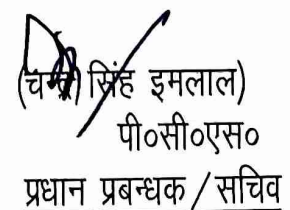 सिंह इमलाल)
पी०सी०एस०
प्रधान प्रबन्धक / सचिव